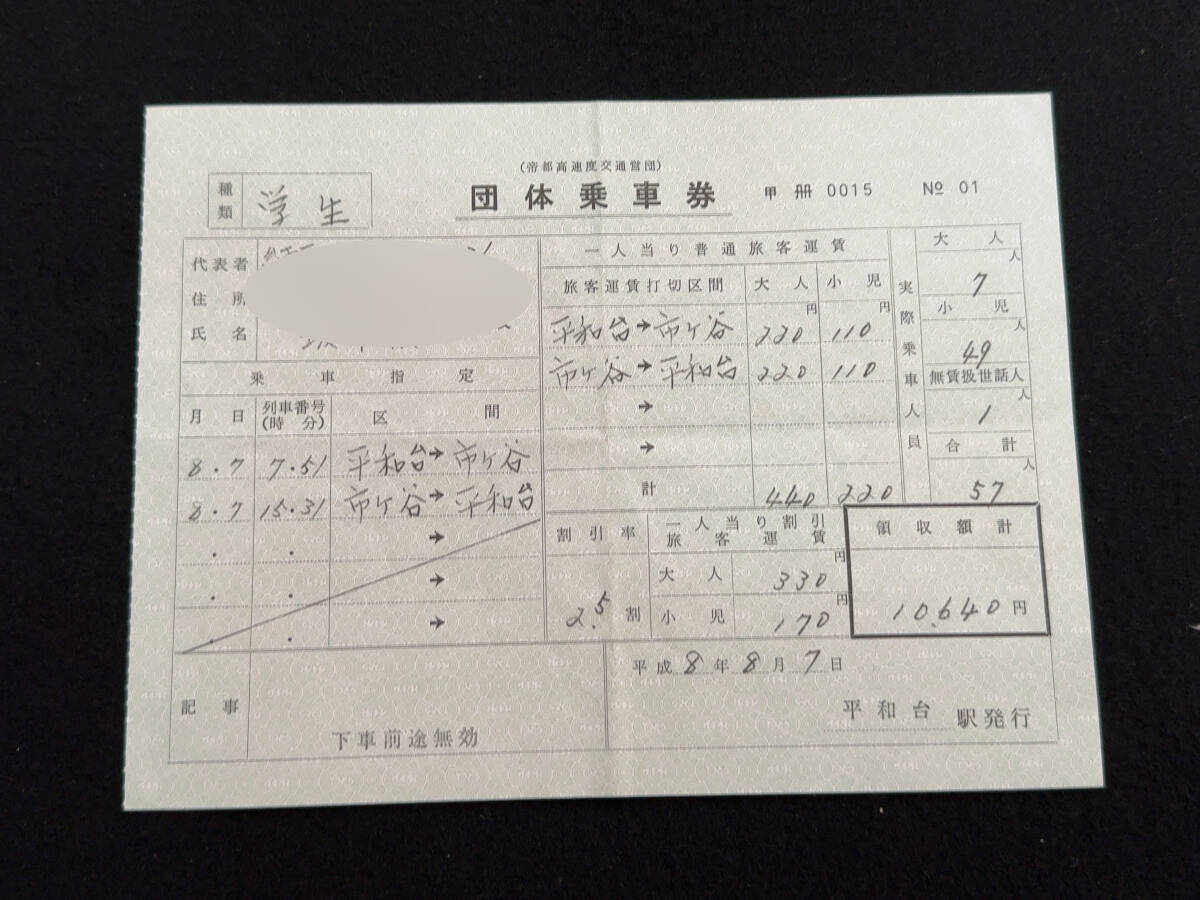 (帝都高速度交通営団)
団体乗車券
甲 冊 0015 № 01
種類 学生
代表者
住所
氏名
乗車指定
月日 列車番号(時分) 区間
8.7 7.51 平和台→市ヶ谷
8.7 15.31 市ヶ谷→平和台
. . →
. . →
. . →
一人当り普通旅客運賃
旅客運賃打切区間 大人 小児
平和台→市ヶ谷 220円 110円
市ヶ谷→平和台 220 110
→
→
計 440 220
実際乗車人員
大人
7人
小児
49人
無賃扱世話人
1人
合計
57人
割引率
2.5割
一人当り割引旅客運賃
大人 330円
小児 170円
領収額計
10,640円
平成8年8月7日
記事
下車前途無効
平和台駅発行